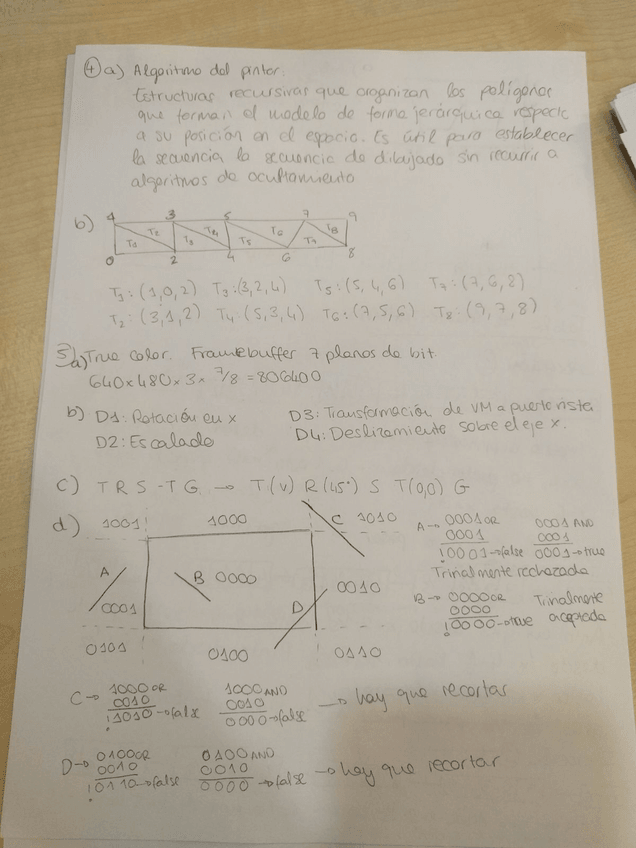 4 a) Algoritmo del pintor:
Estructuras recursivas que organizan los polígonos
que forman el modelo de forma jerárquica respecto
a su posición en el espacio. Es útil para establecer
la secuencia la secuencia de dibujado sin recurrir a
algoritmos de ocultamiento
b) 4 3 5 7 9
T1 T2 T3 T4 T5 T6 T7 T8
0 2 4 6 8
T1: (1,0,2) T3: (3,2,4) T5: (5,4,6) T7: (7,6,8)
T2: (3,1,2) T4: (5,3,4) T6: (7,5,6) T8: (9,7,8)
5 a) True color. Framebuffer 7 planos de bit
640 x 480 x 3 x 7/8 = 806400
b) D1: Rotación en x D3: Transformación de VM a puerto vista
D2: Escalado D4: Deslizamiento sobre el eje x.
c) T R S -T G → T(v) R(45°) S T(0,0) G
d) 1001 1000 C 1010
A B 0000 0010
0001 D
0101 0100 0110
A → 0001 OR 0001 AND
0001 0001
!0001 → false 0001 → true
Trivialmente rechazada
B → 0000 OR Trivialmente
0000 aceptada
!0000 → true
C → 1000 OR 1000 AND → hay que recortar
0010 0010
!1010 → false 0000 → false
D → 0100 OR 0100 AND → hay que recortar
0010 0010
!0110 → false 0000 → false